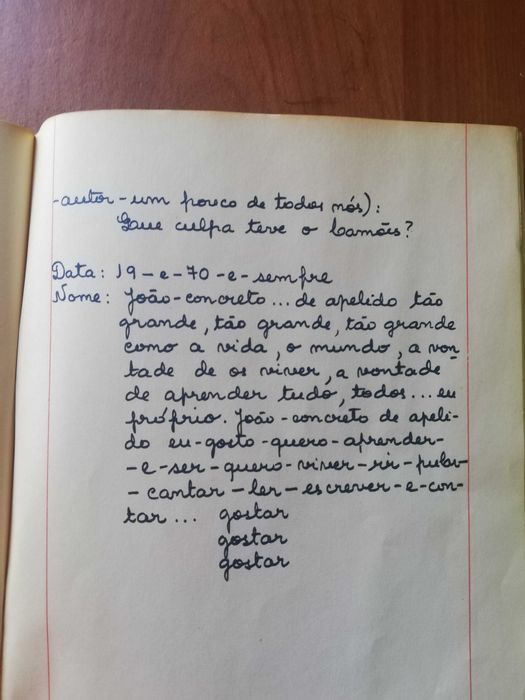 -autor-um pouco de todos nós):
Que culpa teve o Camões?
Data: 19-e-70-e-sempre
Nome: João-concreto... de apelido tão
grande, tão grande, tão grande
como a vida, o mundo, a von-
tade de os viver, a vontade
de aprender tudo, todos... eu
próprio. João-concreto de apeli-
do eu-gosto-quero-aprender-
-e-ser-quero-viver-rir-pular-
-cantar-ler-escrever-e-con-
tar... gostar
gostar
gostar